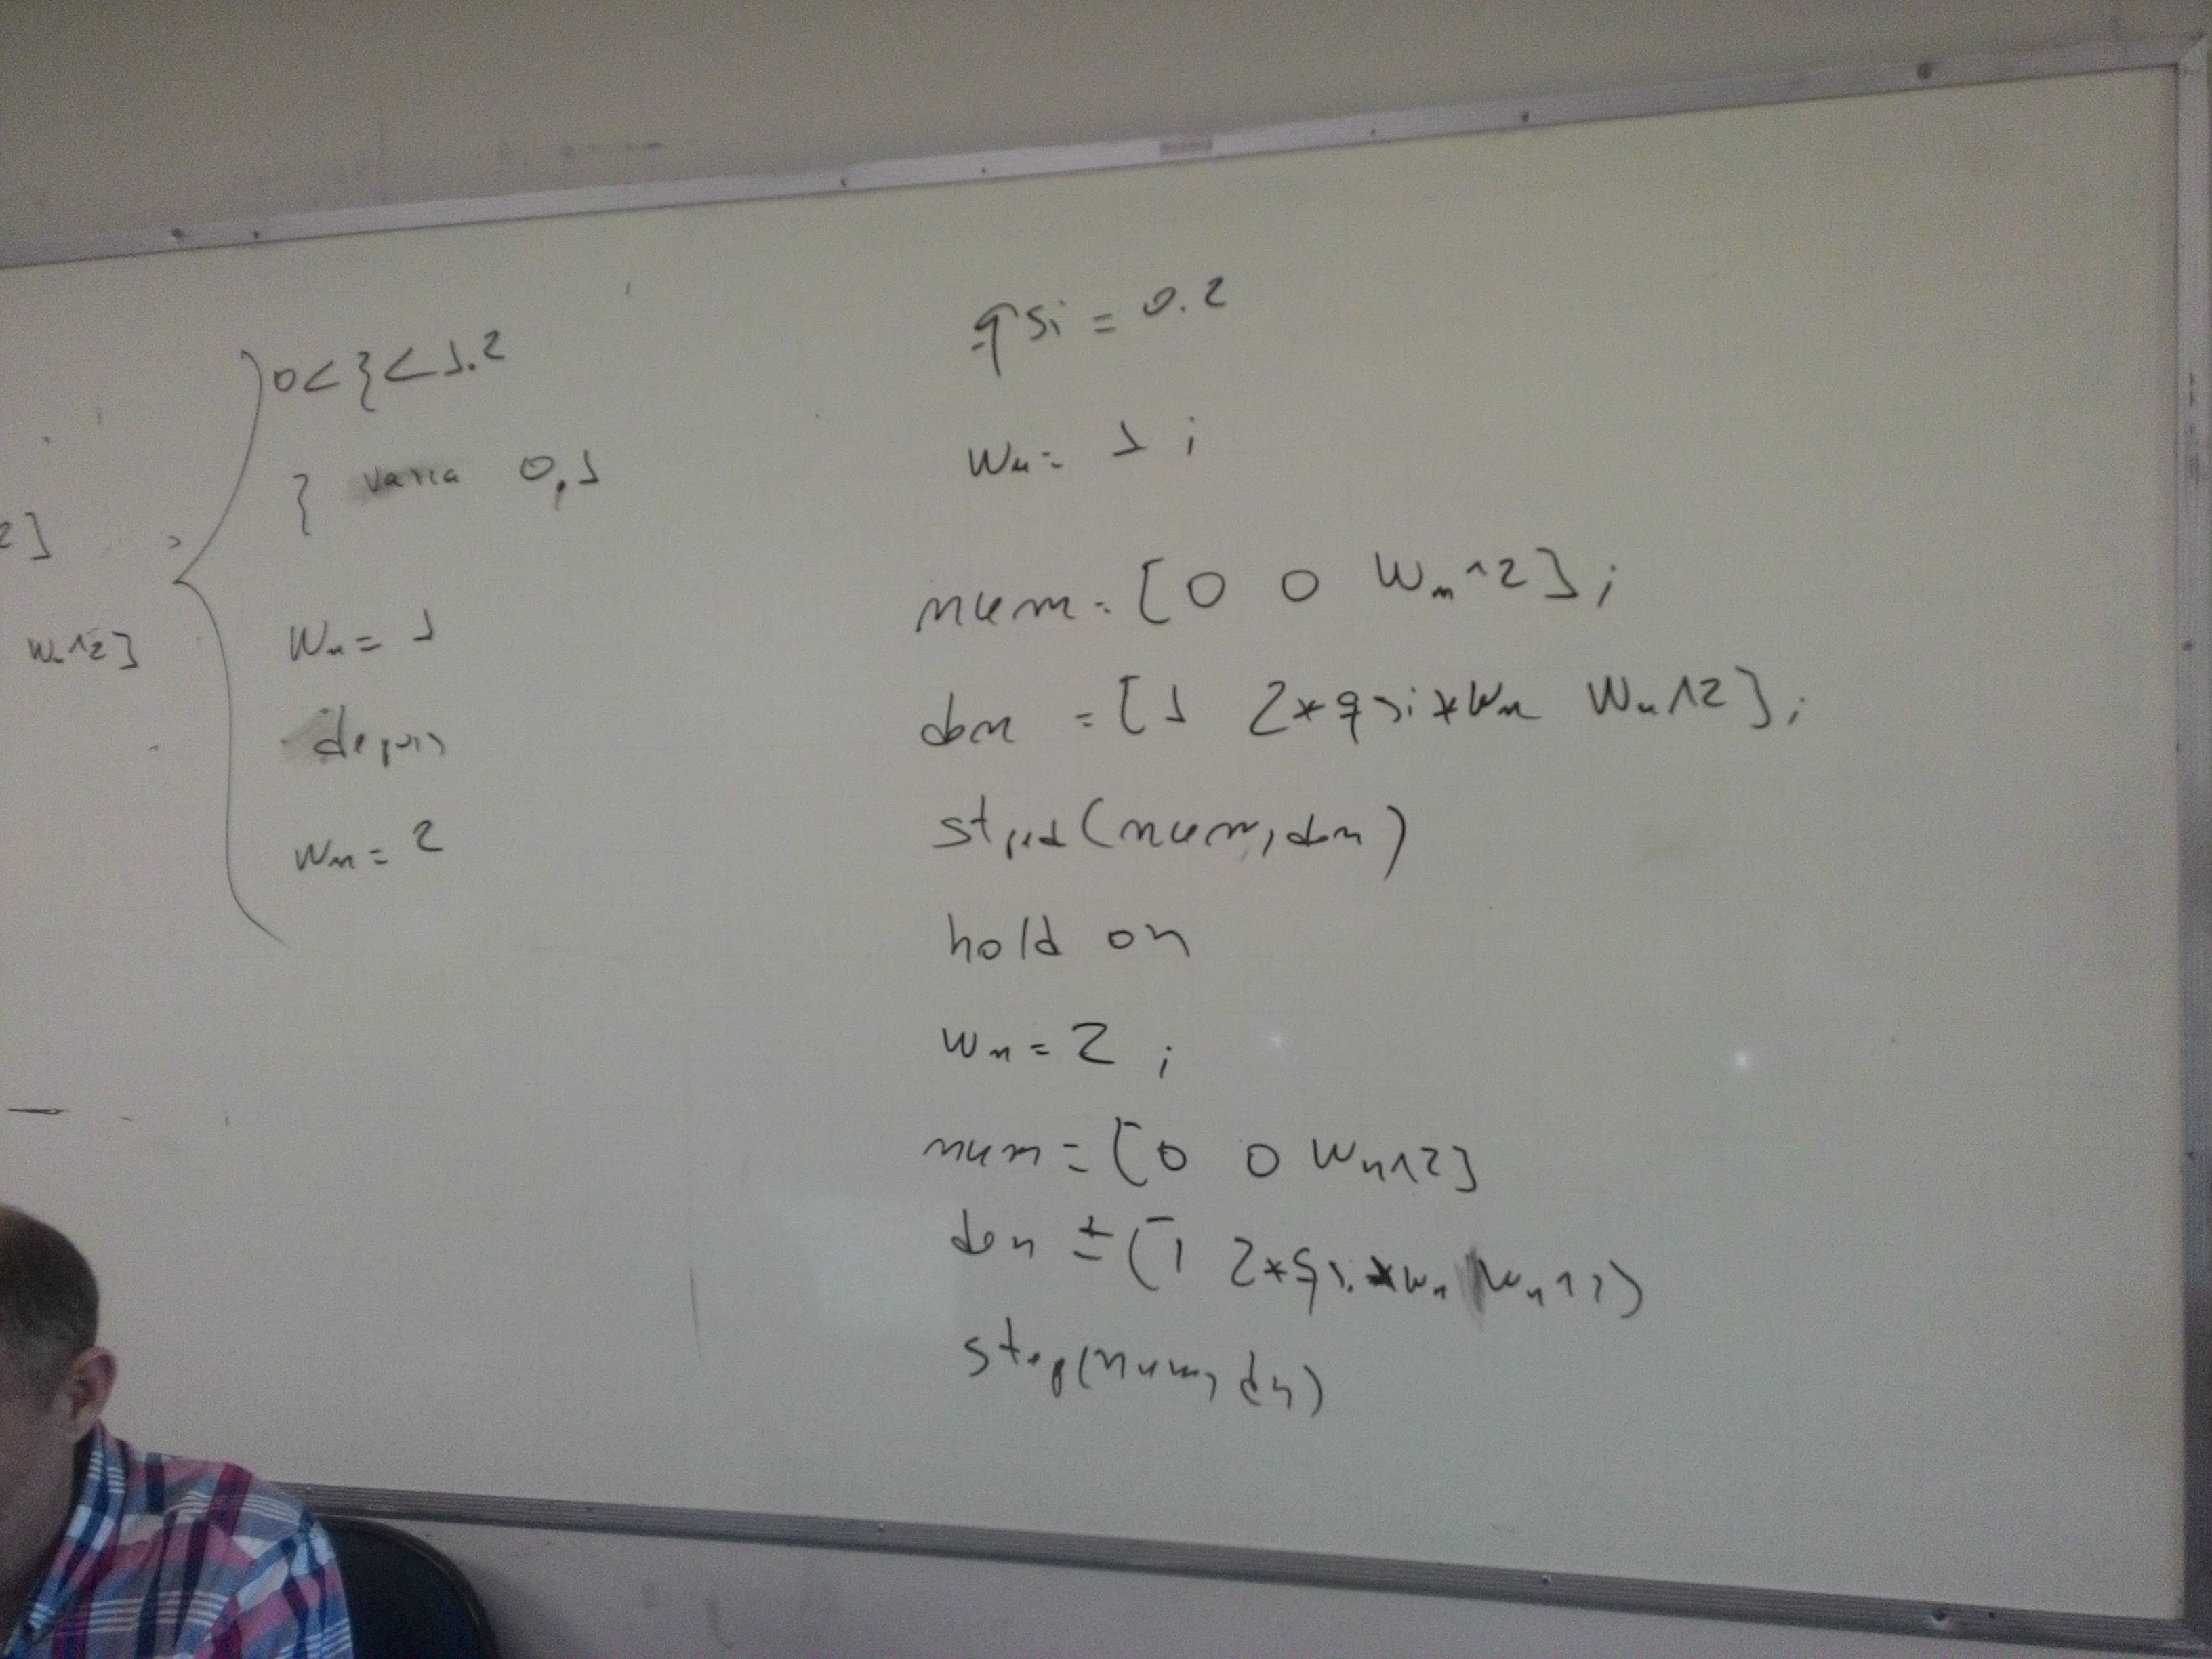 2]
wn^2]
0<ξ<1.2
ξ varia 0,1
wn = 1
depois
wn = 2
qsi = 0.2
wn = 1 ;
num = [0 0 wn^2];
den = [1 2*qsi*wn wn^2];
step(num,den)
hold on
wn = 2 ;
num = [0 0 wn^2]
den = [1 2*qsi*wn wn^2]
step(num,den)